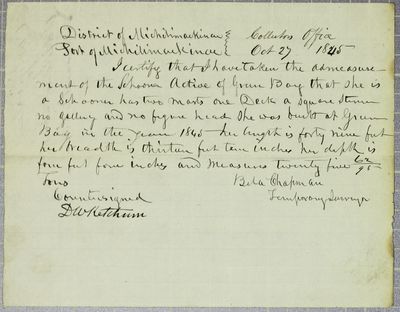 District of Michilimackinac } Collectors Office
Port of Michilimackinac } Oct 27 1845
I certify that I have taken the admeasure
ment of the Schooner Active of Green Bay that she is
a Schooner has two masts one Deck a square stern
no gallery and no figure head she was built at Green
Bay in the year 1845 her length is forty nine feet
her breadth is thirteen feet ten inches her depth is
four feet four inches and measures twenty five 62/95
Tons Bela Chapman
Countersigned Temporary Surveyor
D W Ketchum